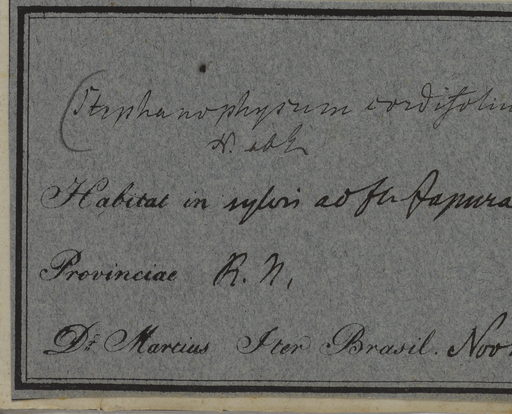 (Stephanophysum cordifoliu
N. ab E.
Habitat in sylvis ad fl. Japura
Provinciae R. N.
Dr. Martius Iter Brasil. Nov